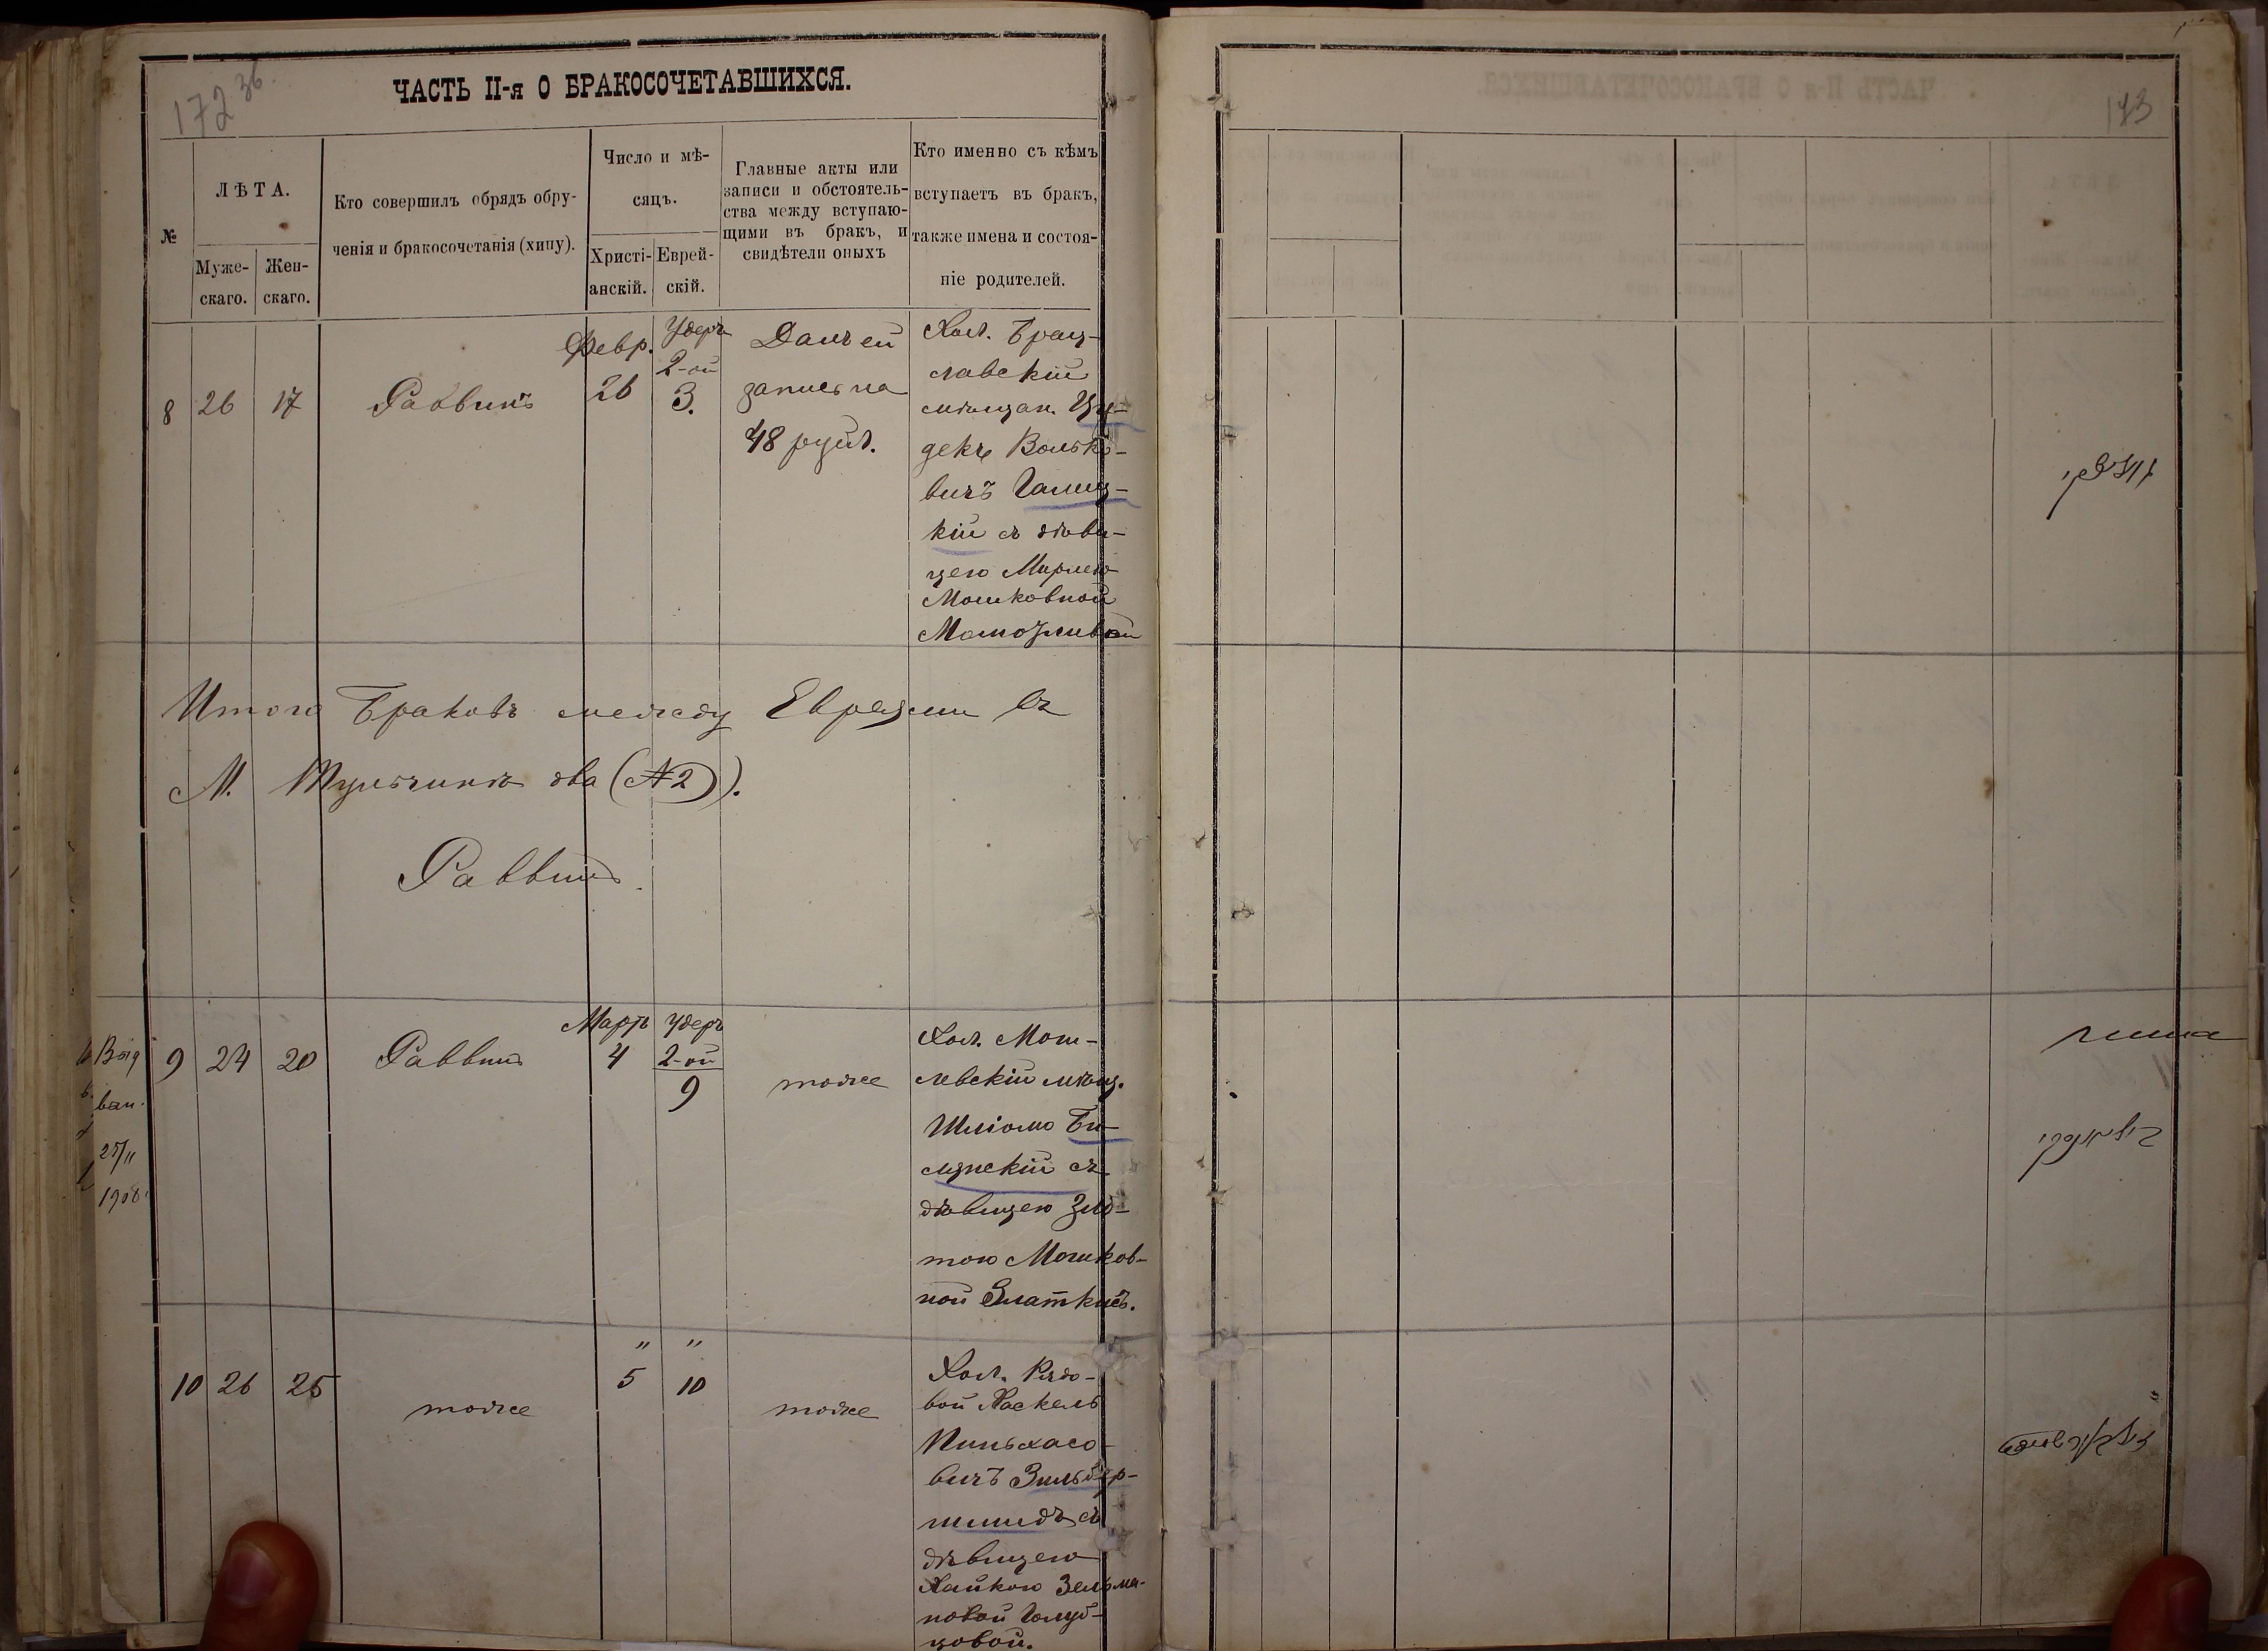 172 36.
ЧАСТЬ II-я О БРАКОСОЧЕТАВШИХСЯ.
№
ЛѢТА.
Муже-
скаго.
Жен-
скаго.
Кто совершилъ обрядъ обру-
ченія и бракосочетанія (хипу).
Число и мѣ-
сяцъ.
Христі-
анскій.
Еврей-
скій.
Главные акты или
записи и обстоятель-
ства между вступаю-
щими въ бракъ, и
свидѣтели оныхъ
Кто именно съ кѣмъ
вступаетъ въ бракъ,
также имена и состоя-
ніе родителей.
8
26
17
Раввинъ
Февр.
26
Удеръ
2-ой
3.
Данъ ей
запись на
48 рубл.
Хол. Брац-
лавскій
мѣщан. Цу-
декъ Волько-
вичъ Галиц-
кій съ дѣви-
цею Мирлею
Мошковной
Итого Браковъ между Евреями въ
М. Тульчинѣ два (№ 2).
Раввинъ.
Выд
25/11
1908
9
24
20
Раввинъ
Мартъ
4
Удеръ
2-ой
9
тоже
Хол. Мог-
левскій мѣщ.
Шліомо
съ
дѣвицею Зло-
тою Мошков-
ной Златкисъ.
10
26
25
тоже
"
5
"
10
тоже
Хол. Рядо-
вой Хаскель
Пинхасо-
вичъ Зильбер-
шмидъ съ
дѣвицею
Хайкою Зельма-
новой Голуб-
цовой.
173